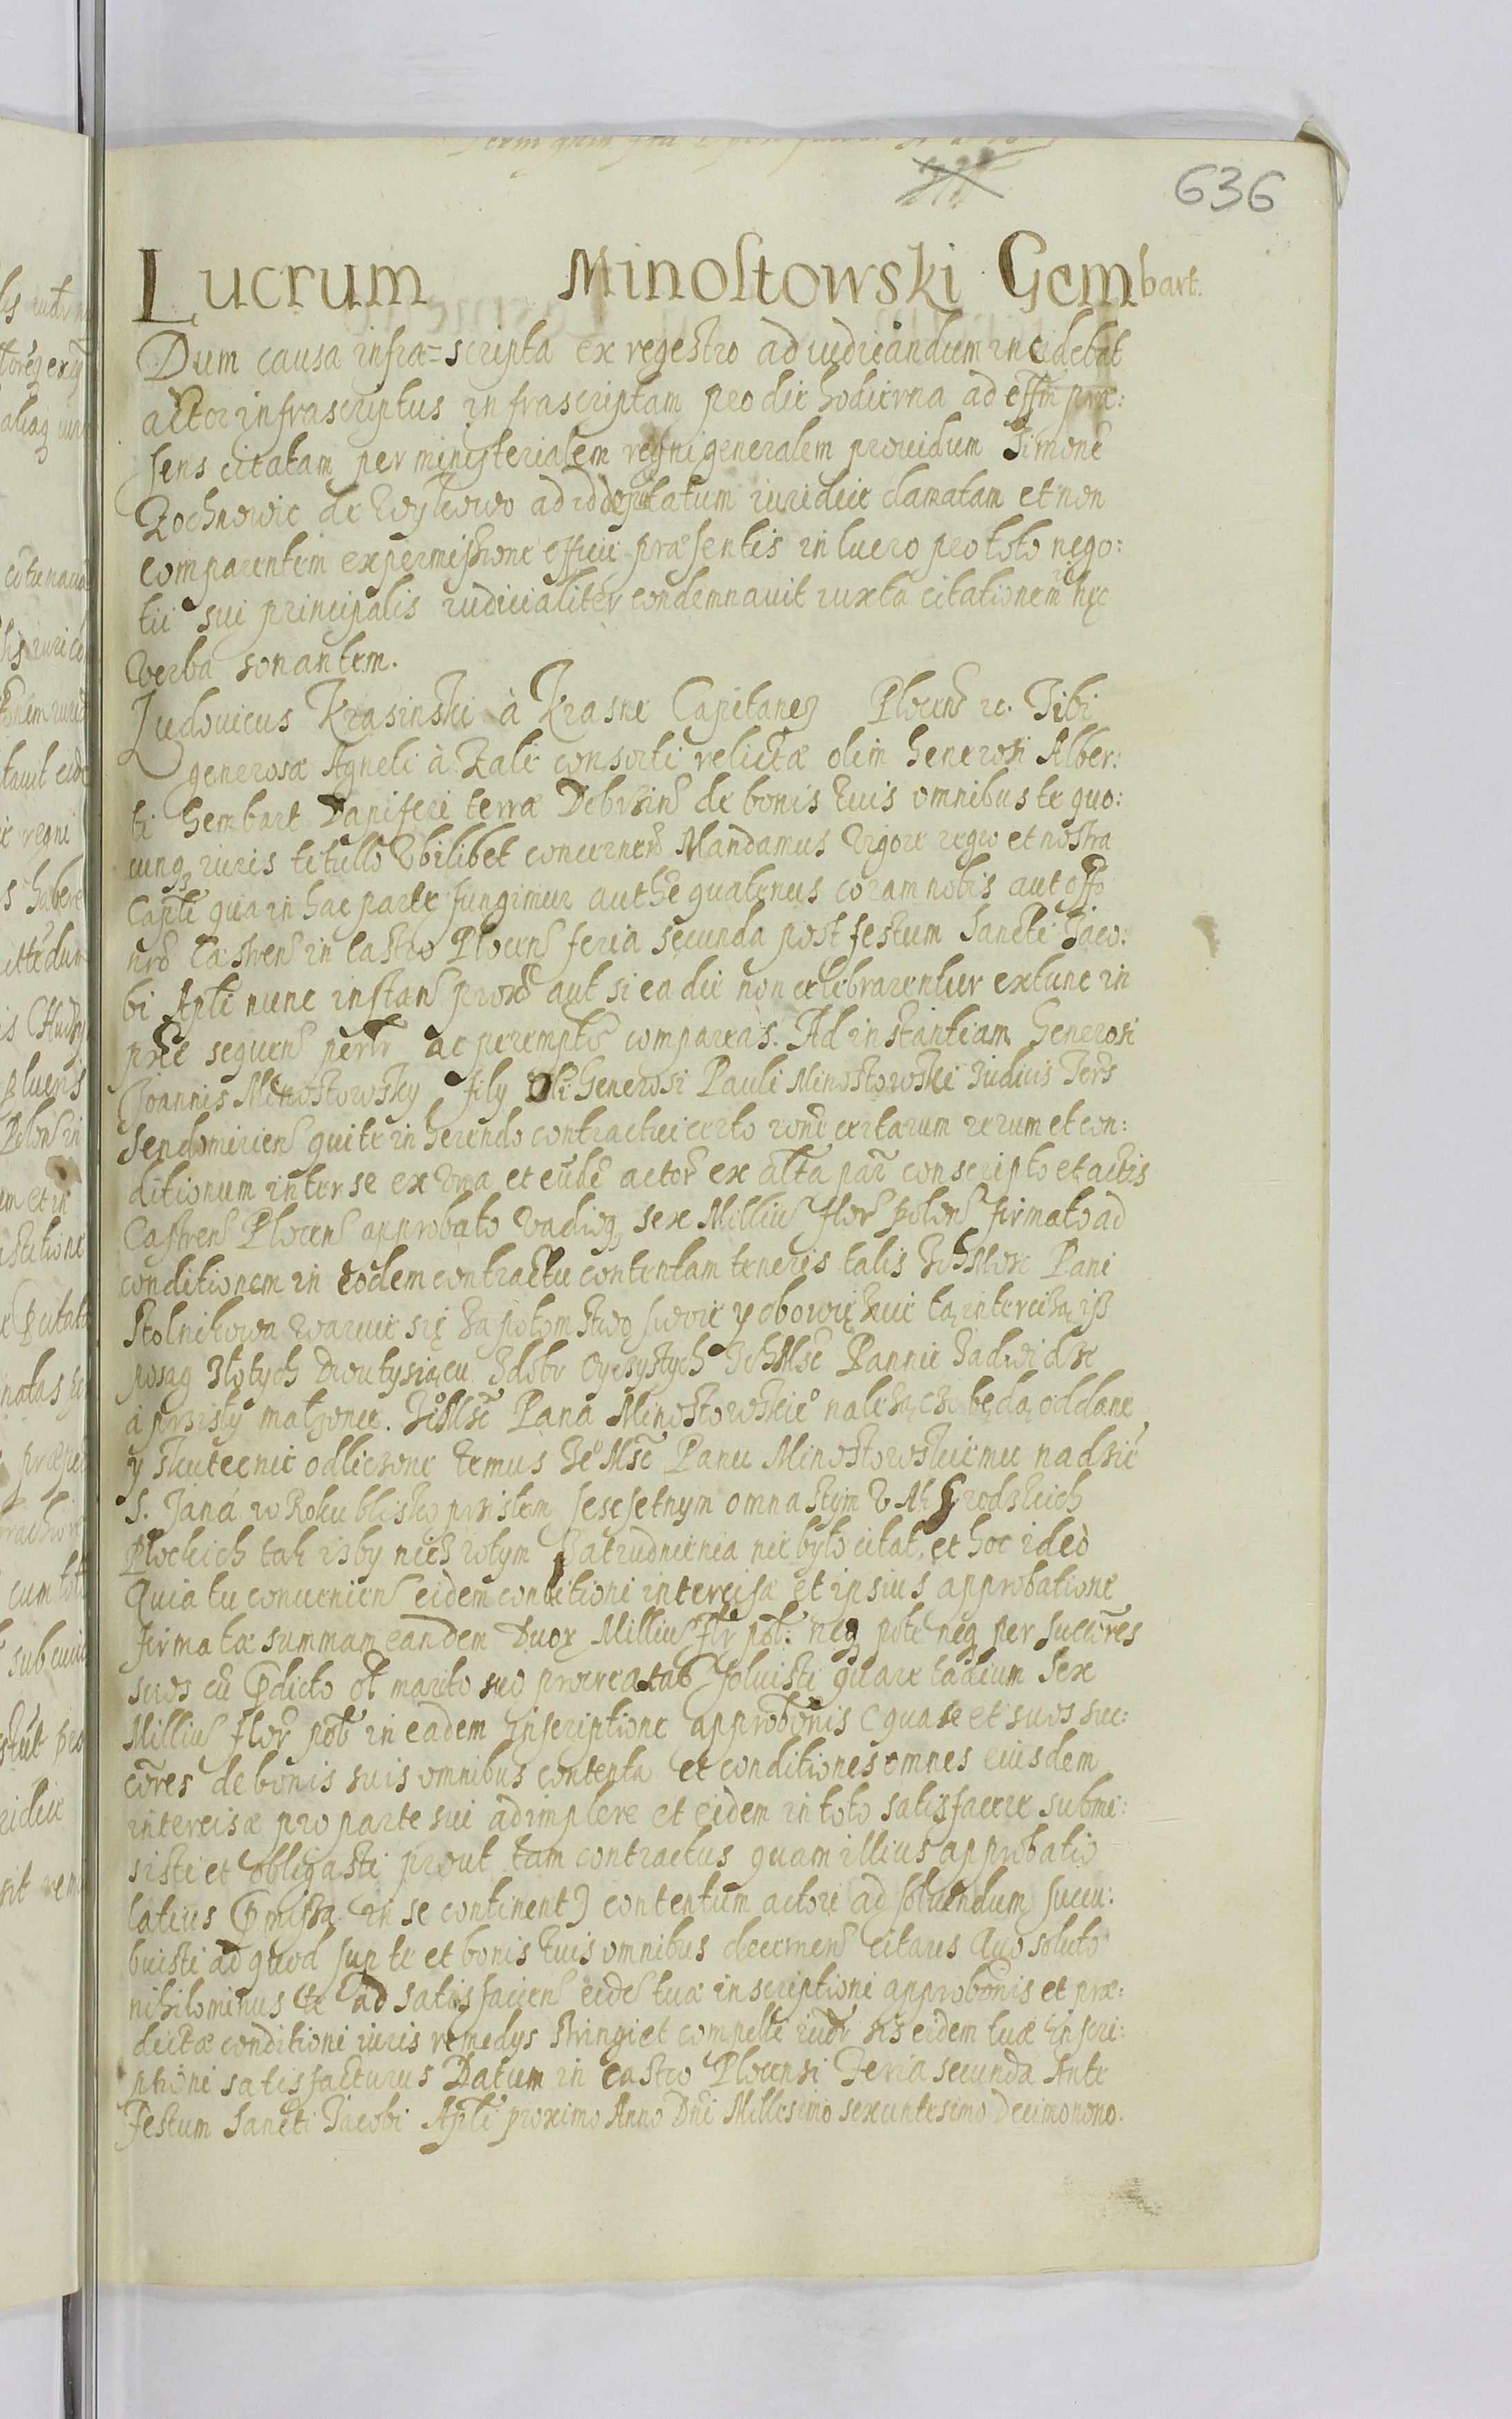 636
Lucrum Minostowski Gembart.
Dum causa infra=scripta ex regestro ad iudicandum incidebat
actor infrascriptus infrascriptam pro die hodierna ad offm præ:
sens citatam per ministerialem regni generalem prouidum Simone
Rochnowic de ad id deputatum iuridice clamatam et non
comparentem ex permissione officii præsentis in lucro pro toto nego:
tii sui principalis iudicialiter condemnauit iuxta citationem hęc
verba sonantem.
Ludouicus Krasinski à Krasne Capitaneq Plocens rc. Tibi
generosæ Agneti à Zale consorti relictæ olim Generosi Alber:
ti Gembart Dapiferi terræ Dobrzins de bonis tuis omnibus te quo:
cunq iuris titullo vbilibet concernens Mandamus vigore regio et nostra
Captli qua in hac parte fungimur authe quatenus coram nobis aut offo
nro Castrens in Castro Plocens feria secunda post festum Sancti Jaco:
bi Apli nunc instans proxo aut si ea die non celebrarentur extunc in
seqvens pertr ac perempte compareas. Ad instantiam Generosi
Joannis Minostowsky fily oli Generosi Pauli Minostowski Judicis Terrs
Sendomiriens qui te in herendo contractui certo rone certarum rerum et con:
ditionum inter se ex vna et eunde actore ex alta par conscripto et actis
Castrens Plocens approbato vadioq sex Milliu flor polons firmato ad
conditionem in eodem contractu contentam teneris talis Pani
Stolnikowa waruie się za potomstwo swoie y obowięzuie tą intercizą iß
posag złotych dwu tysiącu zdobr Oyczystych JchMsc Pannie Jadwidze
a przisły malzonce JeoMsc Pana Minostowskieo nalezączi będą oddane
y skutecnie odliczone temus JeoMsc Panu Minostowskiemu nadzie
S. Jana w Roku blisko przislem seścsetnym omnastym v Ak Grodzkich
Plockich tak izby niczwtym zatrudnienia nie było citat. et hoc ideo
Quia tu conueniens eidem conditioni intercisæ et ipsius approbatione
firmatæ summam eandem Duoꝝ Milliu flr pol: neq per te neq per succores
suos cu pdicto ol marito suo procreatas soluisti quare vadium sex
Milliu flor pol in eadem inscriptione approbonis (qua se et suos suc:
cores de bonis suis omnibus contenta et conditiones omnes eiusdem
intercisæ pro parte sui adimplere et eidem in toto satisfacere submi:
sisti et obligasti prout tam contractus quam illius approbatio
latius pmissa in se continent) contentum actori ad soluendum succu:
buisti ad quod sup te et bonis tuis omnibus decernens citaris Quo soluto
nihilominus te ad satisfaciens eide tuæ inscriptioni approbonis et præ:
dictæ conditioni iuris remedys stringi et compelli eidem tuæ inscri:
ptioni satisfacturus Datum in Castro Plocensi Feria secunda Ante
Festum Sancti Jacobi Apli proximo Anno Dni Millesimo sexcentesimo Decimonono.